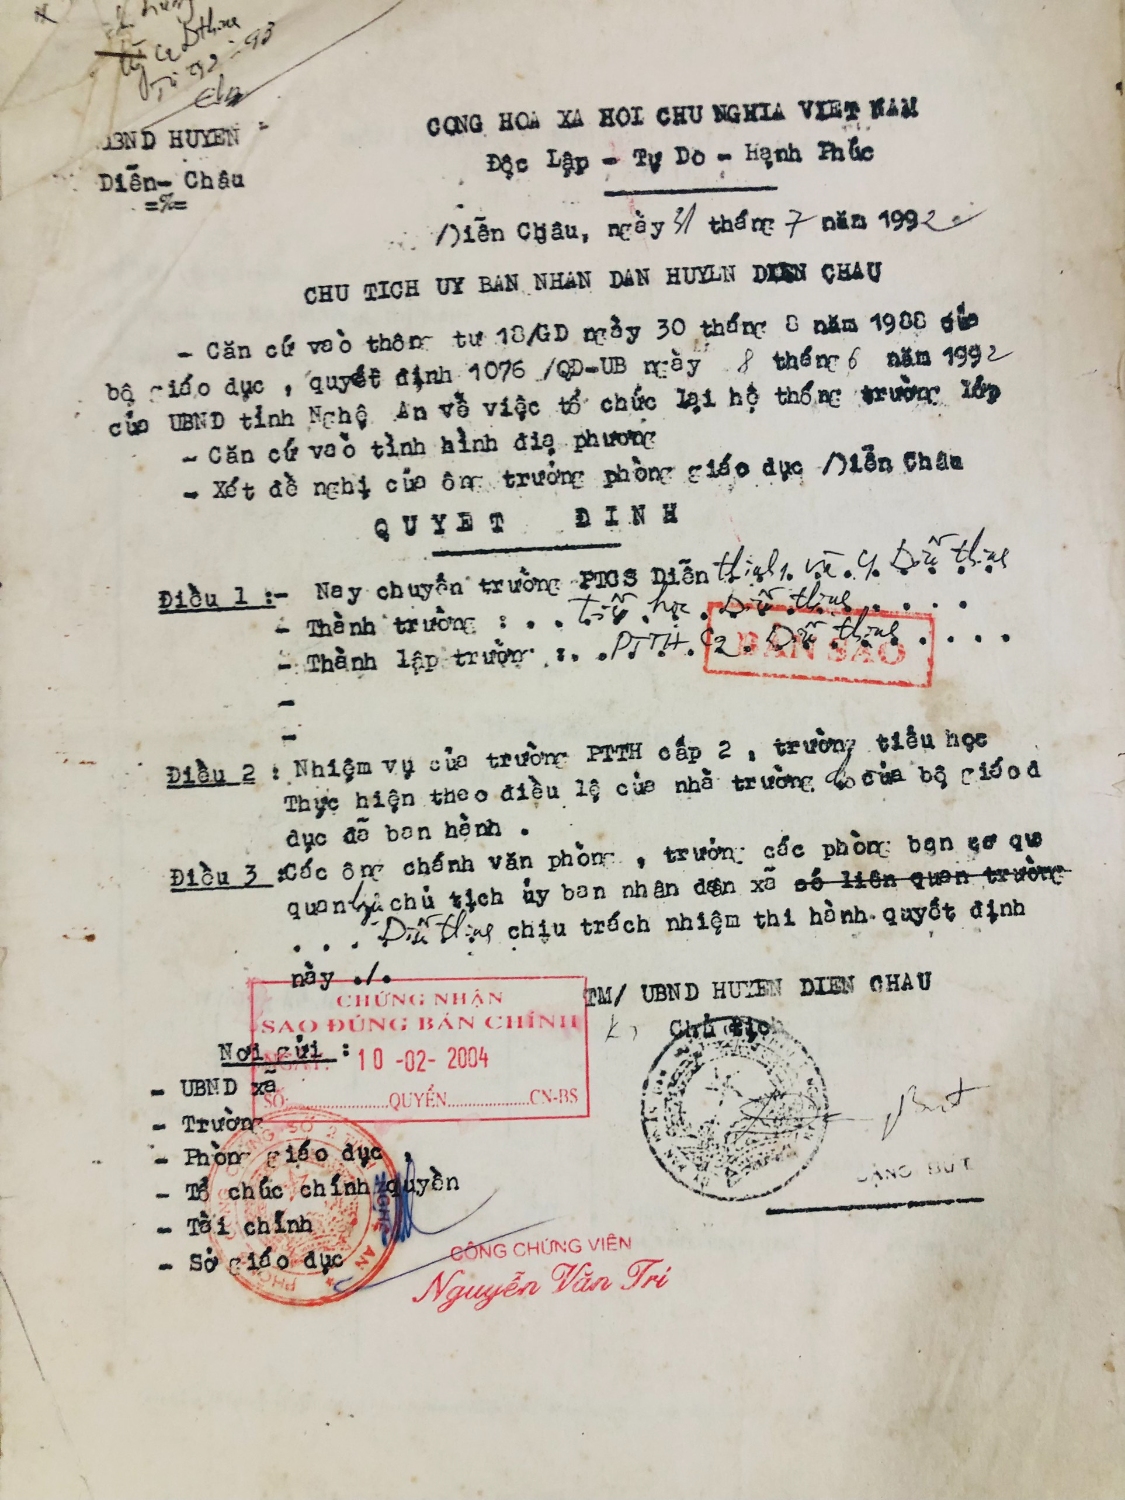 Từ 92 - 93
UBND HUYEN
CONG HOA XA HOI CHU NGHIA VIET NAM
Diễn- Châu
Độc Lập - Tự Do - Hạnh Phúc
=%=
Diễn Châu, ngày 31 tháng 7 năm 1992
CHU TICH UY BAN NHAN DAN HUYLN DIEN CHAU
- Căn cứ vaò thông tư 18/GD ngày 30 tháng 8 năm 1988 của
bộ giáo dục , quyết định 1076 /QD-UB ngày 8 tháng 6 năm 1992
của UBND tỉnh Nghệ An về việc tổ chức lại hệ thống trường lớp
- Căn cứ vaò tình hình điạ phương
- Xét đề nghị của ông trưởng phòng giáo dục Diễn Châu
QUYET ĐINH
Điều 1 :- Nay chuyển trường PTCS Diễn thịnh 1. và 2 Diễn thịnh
- Thành trường : . . tiểu học . Diễn thịnh . . . . .
- Thành lập trường :. . PTTH. C2. Diễn thịnh . . . .
-
-
BẢN SAO
Điều 2 : Nhiệm vụ của trường PTTH cấp 2 , trường tiểu học
Thực hiện theo điều lệ của nhà trường do của bộ giáo d
dục đã ban hành .
Điều 3 :Các ông chánh văn phòng , trưởng các phòng ban cơ qua
quan chủ tịch ủy ban nhân dân xã có liên quan trường
. . . . Diễn thịnh chịu trách nhiệm thi hành quyết định
này ./.
TM/ UBND HUYEN DIEN CHAU
K, Chủ tịch
CHỨNG NHẬN
SAO ĐÚNG BẢN CHÍNH
NGÀY: 10 -02- 2004
SỐ:....................QUYỂN................CN-BS
Nơi gửi :
- UBND xã
- Trường
- Phòng giáo dục ,
- Tổ chức chính quyền
- Tài chính
- Sở giáo dục
ĐẶNG BÚT
CÔNG CHỨNG VIÊN
Nguyễn Văn Trí